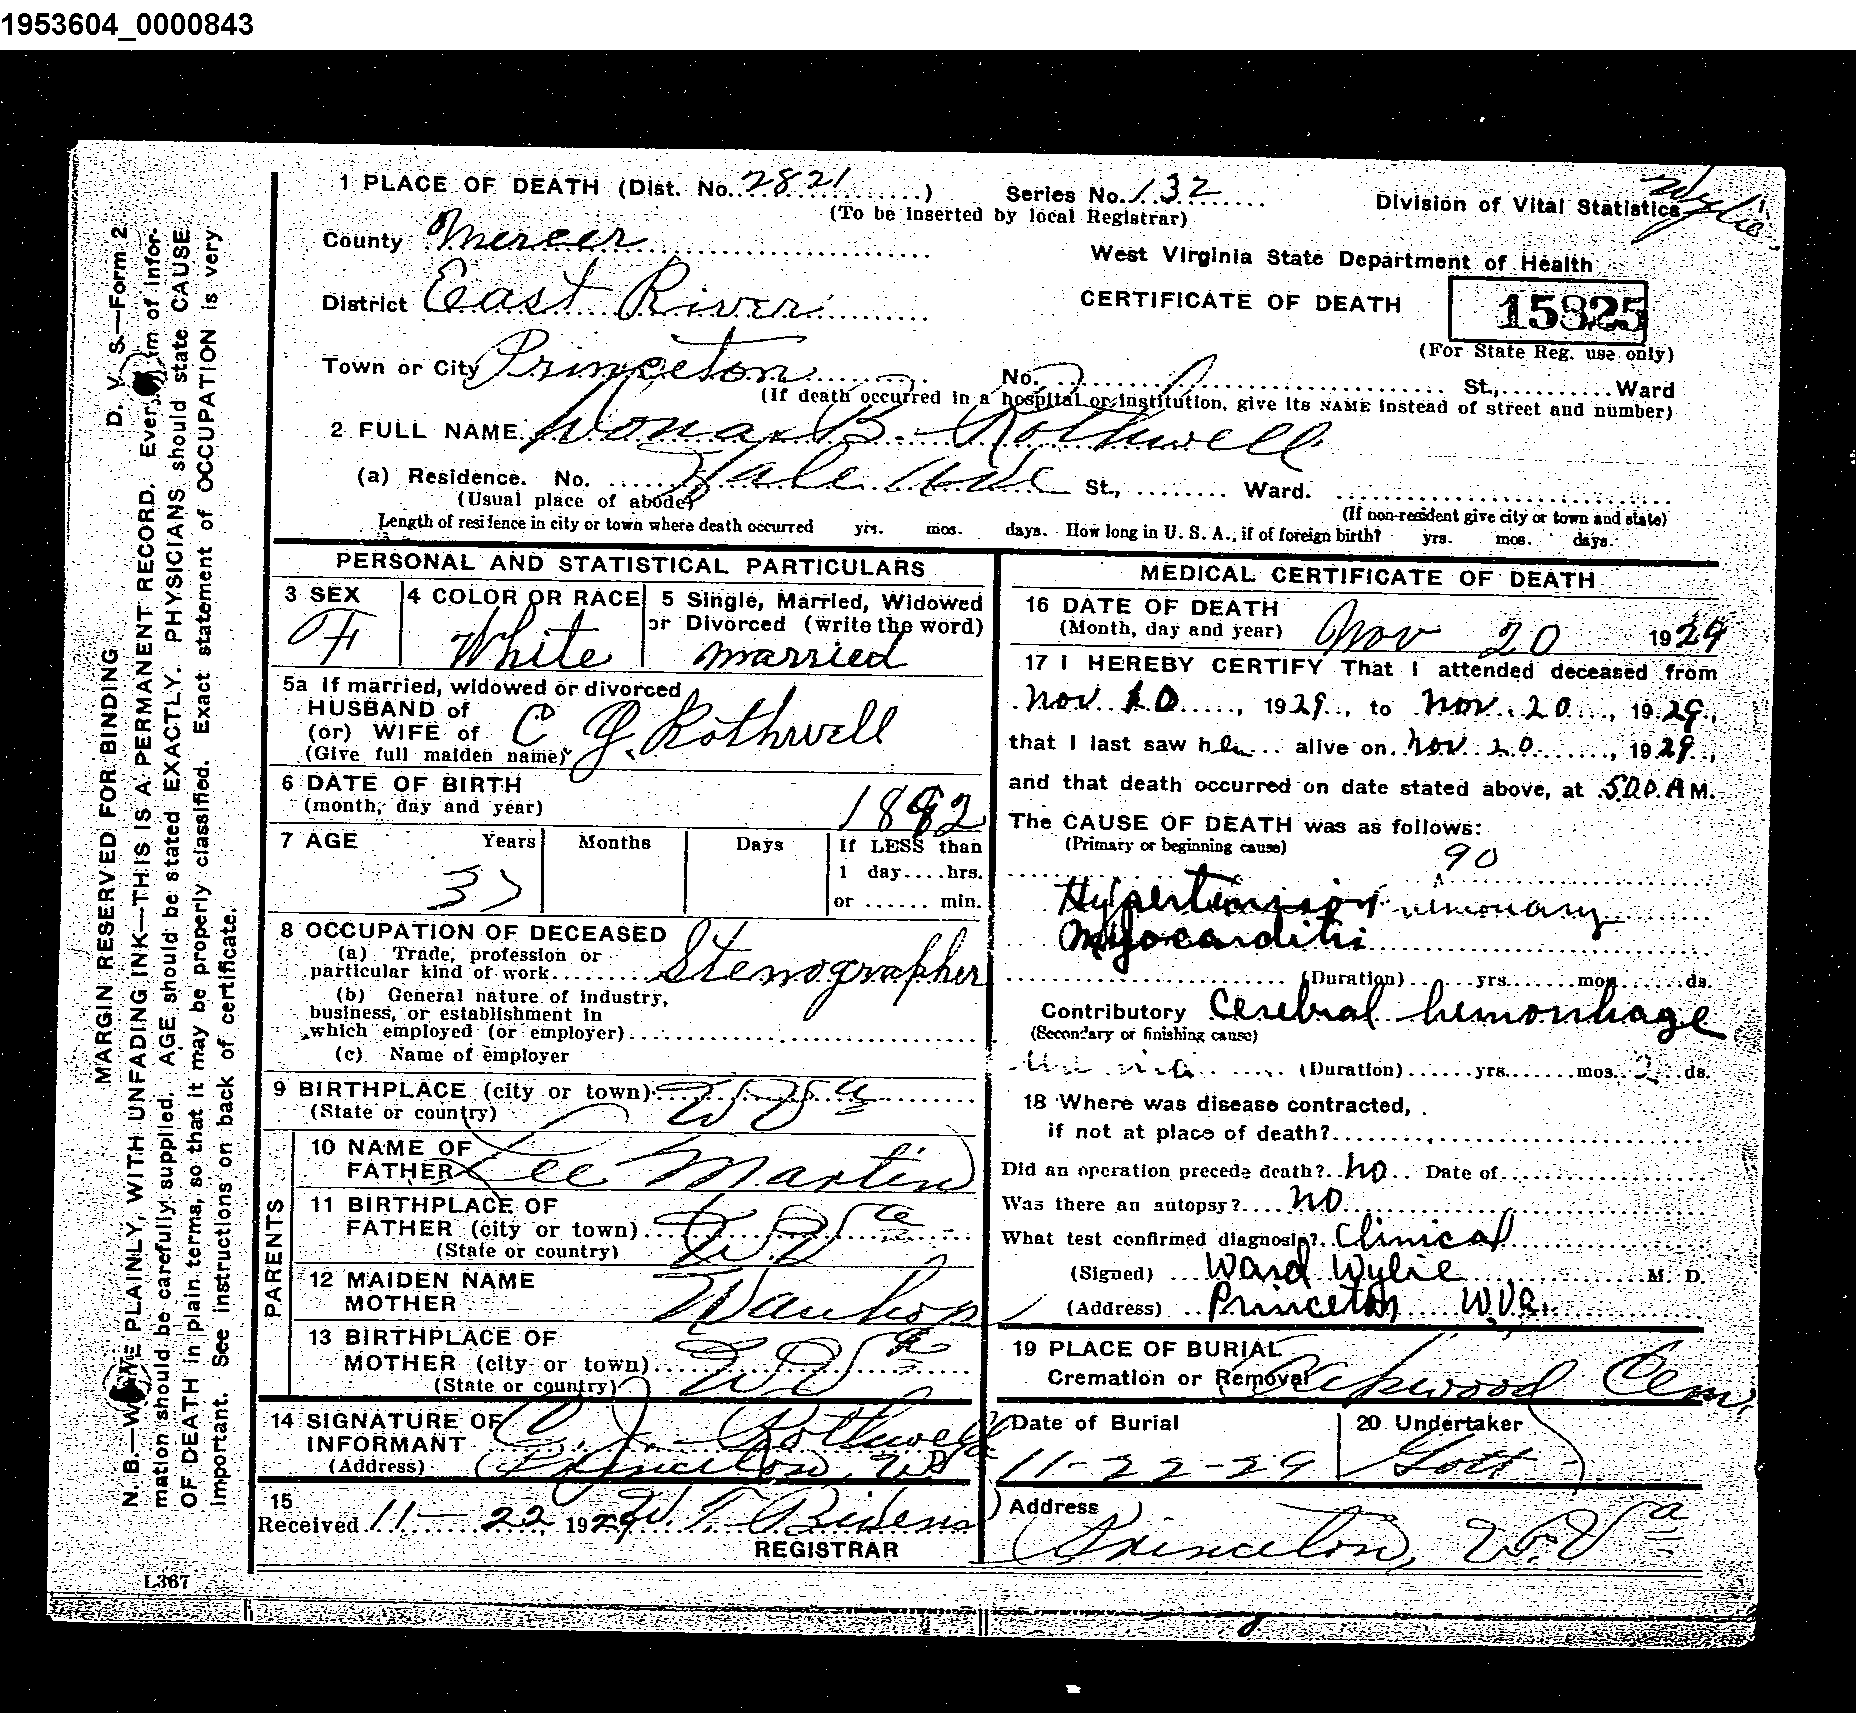 1953604_0000843
1 PLACE OF DEATH (Dist. No. 2821) Series No. 132 Division of Vital Statistics Wylie
(To be inserted by local Registrar)
County Mercer
West Virginia State Department of Health
District East River CERTIFICATE OF DEATH 15325
(For State Reg. use only)
Town or City Princeton No. St., Ward
(If death occurred in a hospital or institution, give its NAME instead of street and number)
2 FULL NAME B. Rothwell
(a) Residence. No. Hale Ave St., Ward.
(Usual place of abode) (If non-resident give city or town and state)
Length of residence in city or town where death occurred yrs. mos. days. How long in U. S. A., if of foreign birth? yrs. mos. days.
PERSONAL AND STATISTICAL PARTICULARS
3 SEX 4 COLOR OR RACE 5 Single, Married, Widowed
or Divorced (write the word)
F White married
5a If married, widowed or divorced
HUSBAND of
(or) WIFE of C J. Rothwell
(Give full maiden name)
6 DATE OF BIRTH
(month, day and year) 1892
7 AGE Years Months Days If LESS than
1 day....hrs.
37
or ...... min.
8 OCCUPATION OF DECEASED
(a) Trade, profession or
particular kind of work Stenographer
(b) General nature of industry,
business, or establishment in
which employed (or employer)
(c) Name of employer
9 BIRTHPLACE (city or town) W Va
(State or country)
PARENTS
10 NAME OF
FATHER Lee Martin
11 BIRTHPLACE OF
FATHER (city or town) W. Va
(State or country)
12 MAIDEN NAME
MOTHER Wauhop
13 BIRTHPLACE OF
MOTHER (city or town) W Va
(State or country)
14 SIGNATURE OF
INFORMANT C. J. Rothwell
(Address) Princeton, W Va
15
Received 11-22 1929 W T Bivens
REGISTRAR
MEDICAL CERTIFICATE OF DEATH
16 DATE OF DEATH
(Month, day and year) Nov 20 1929
17 I HEREBY CERTIFY That I attended deceased from
Nov 10, 1929, to Nov. 20, 1929,
that I last saw her alive on Nov 20, 1929,
and that death occurred on date stated above, at 5.00 A M.
The CAUSE OF DEATH was as follows:
(Primary or beginning cause)
90
Hypertension
Myocarditis
(Duration) yrs. mos. ds.
Contributory Cerebral hemorrhage
(Secondary or finishing cause)
(Duration) yrs. mos. 2 ds.
18 Where was disease contracted,
if not at place of death?
Did an operation precede death? no Date of
Was there an autopsy? no
What test confirmed diagnosis? Clinical
(Signed) Ward Wylie M. D.
(Address) Princeton W.Va.
19 PLACE OF BURIAL
Cremation or Removal Oakwood Cem.
Date of Burial 20 Undertaker
11-22-29 Gott
Address
Princeton, W. Va
MARGIN RESERVED FOR BINDING D. V. S.—Form 2
N. B.—WRITE PLAINLY, WITH UNFADING INK—THIS IS A PERMANENT RECORD. Every item of infor-
mation should be carefully supplied. AGE should be stated EXACTLY. PHYSICIANS should state CAUSE
OF DEATH in plain terms, so that it may be properly classified. Exact statement of OCCUPATION is very
important. See instructions on back of certificate.
L367